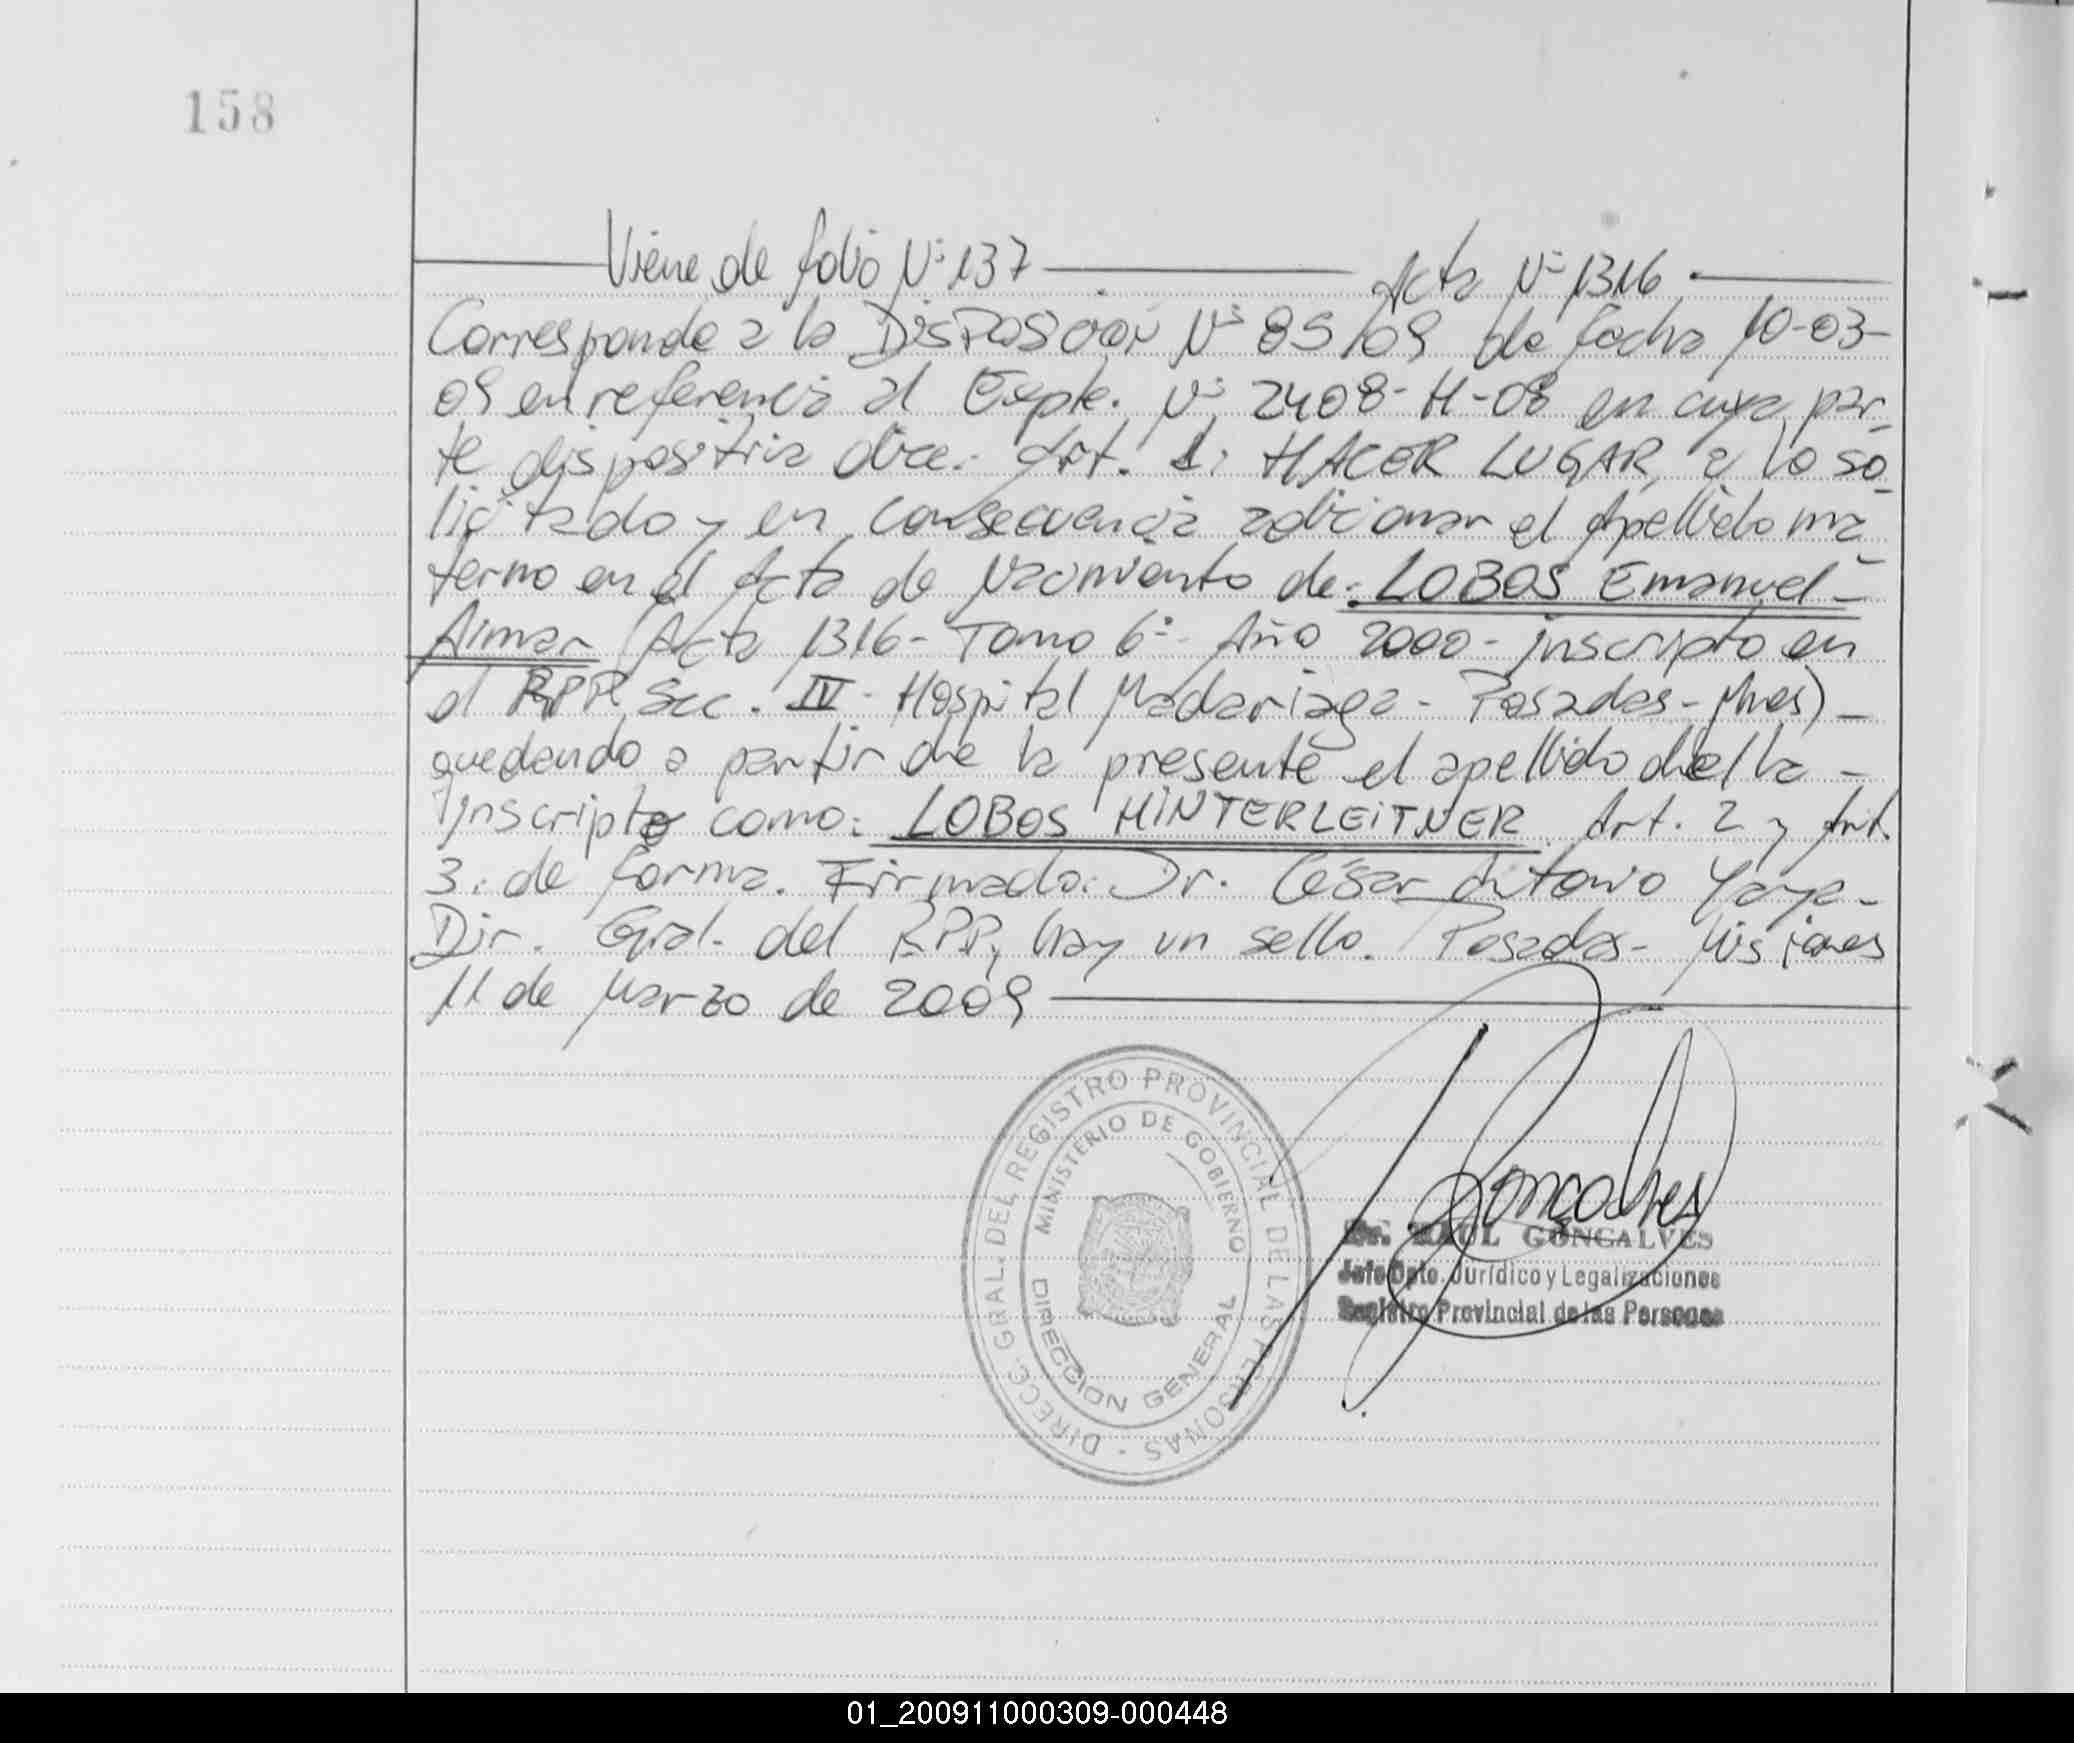 158
Viene de folio Nº 137 Acta Nº 1316
Corresponde a la DISPOSICION Nº 85/09 de fecha 10-03-
09 en referencia al Expte. Nº 2408-H-08 en cuya par-
te dispositiva dice: Art. 1: HACER LUGAR a lo so-
licitado y en consecuencia adicionar el Apellido ma-
terno en el Acta de Nacimiento de: LOBOS Emanuel -
Aimar (Acta 1316 - Tomo 6º - Año 2000 - inscripto en
el RPP. Sec. IV - Hospital Madariaga - Posadas - Mnes) -
quedando a partir de la presente el apellido del/la -
inscripto como: LOBOS HINTERLEITNER. Art. 2 y Art.
3: de forma. Firmado: Dr. César Antonio Yaya -
Dir. Gral. del RPP, hay un sello. Posadas - Misiones
11 de Marzo de 2009
DIRECC. GRAL. DEL REGISTRO PROVINCIAL DE LAS PERSONAS -
MINISTERIO DE GOBIERNO
DIRECCION GENERAL
Gonçalves
Dr. RAUL GONCALVES
Jefe Dpto. Jurídico y Legalizaciones
Registro Provincial de las Personas
01_200911000309-000448